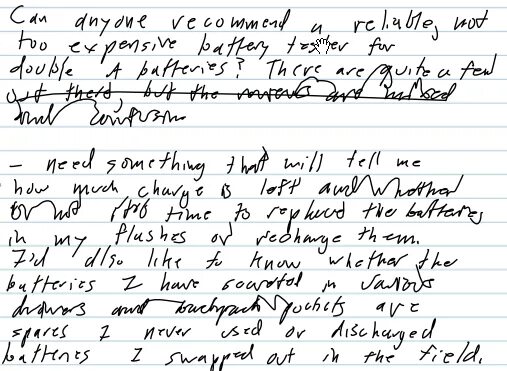 Can anyone recommend a reliable, not
too expensive battery tester for
double A batteries? There are quite a few
out there, but the reviews are mixed
and confusing
- need something that will tell me
how much charge is left and whether
or not it's time to replace the batteries
in my flashes or recharge them.
I'd also like to know whether the
batteries I have scattered in various
drawers and backpack pockets are
spares I never used or discharged
batteries I swapped out in the field.